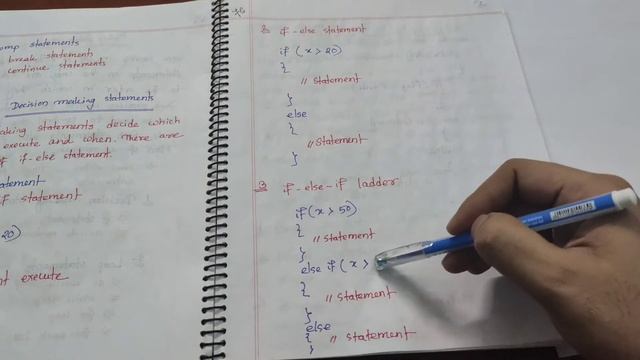 omp statements
break statements
continue statements
Decision making statements
aking statements decide which
execute and when. There are
if if-else statement.
atement
if statement
20)
nt execute
2. if-else statement
if (x>20)
{
// Statement
}
else
{
// Statement
}
3. if-else-if ladder
if(x>50)
{
// Statement
}
else if (x >
{
// Statement
}
else
{ // Statement
}